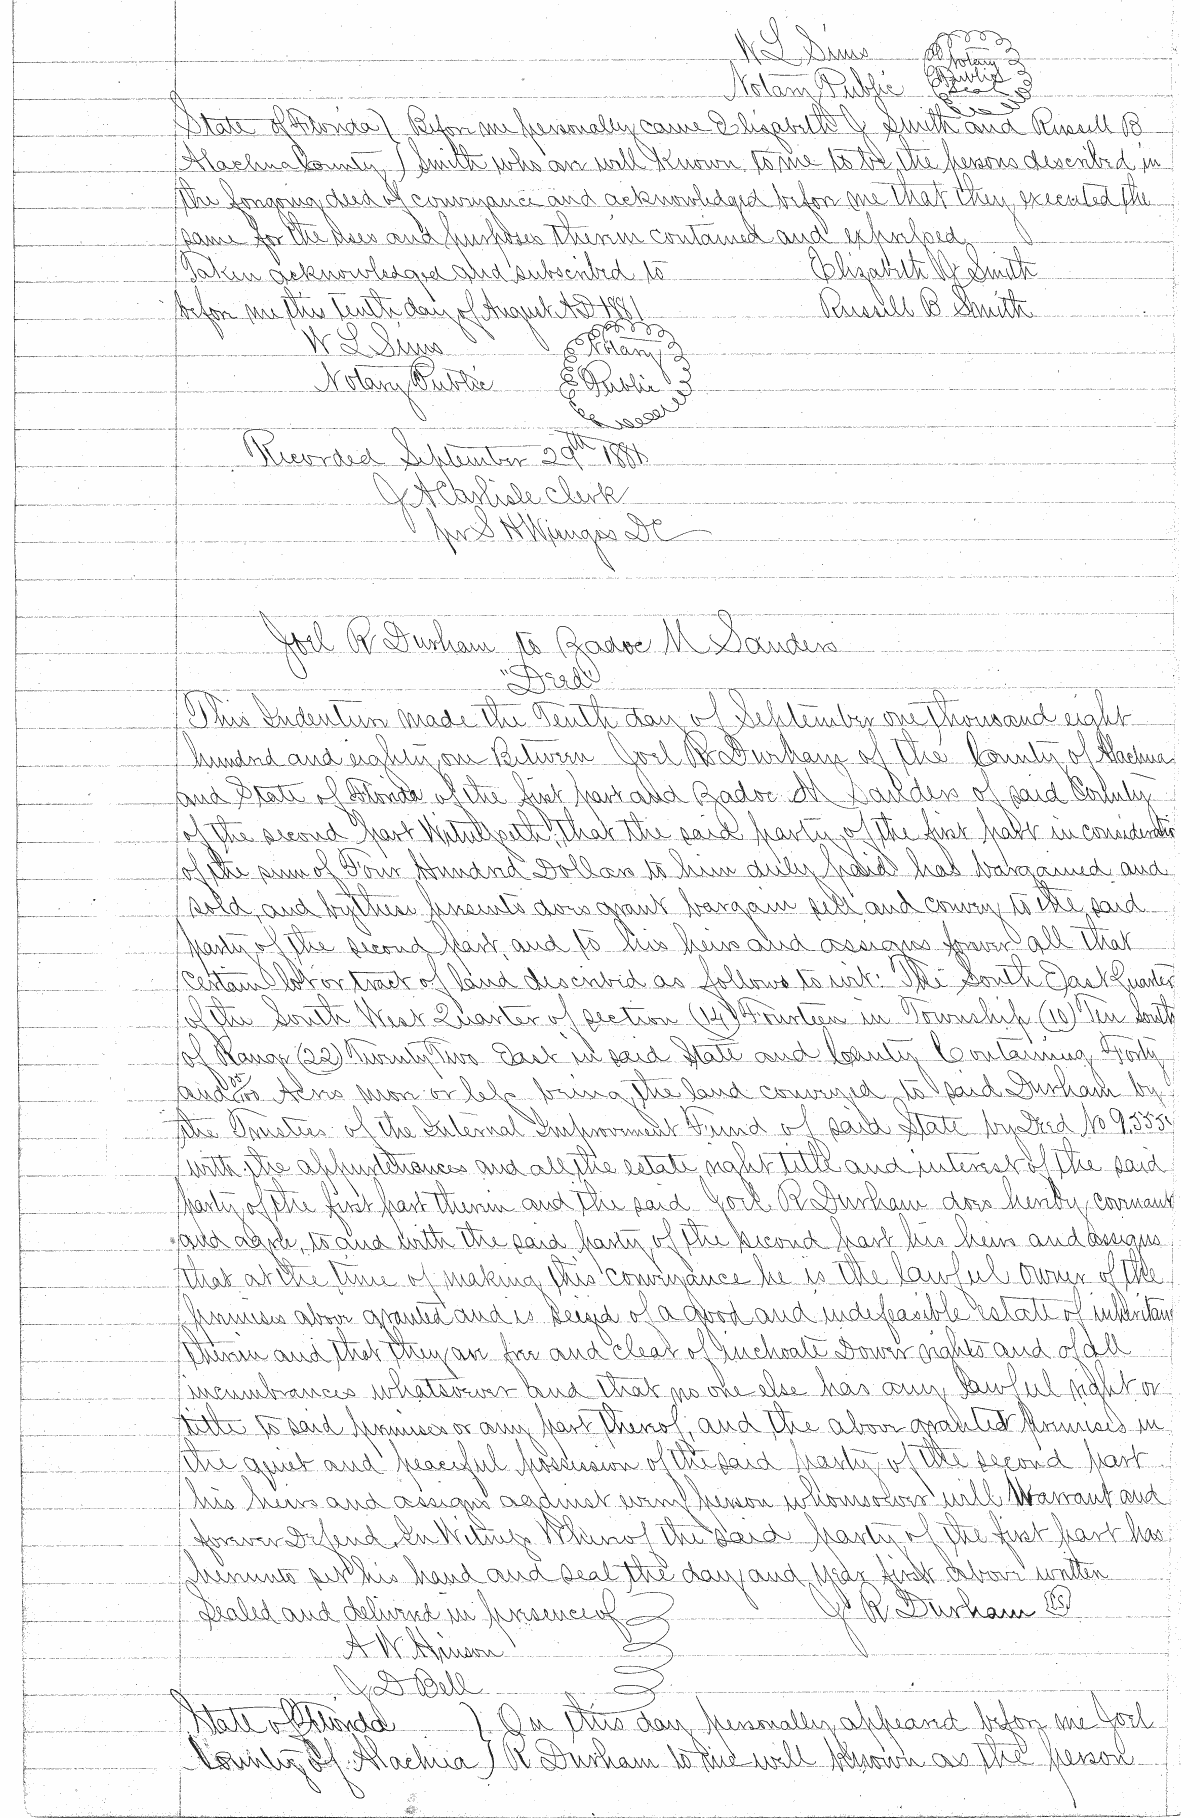 W L Sims
Notary Public
Notary
Public
Seal
State of Florida } Before me personally came Elizabeth J Smith and Russell B
Alachua County } Smith who are well known to me to be the persons described in
the foregoing deed of conveyance and acknowledged before me that they executed the
same for the uses and purposes therein contained and expressed
Taken acknowledged and subscribed to Elizabeth J Smith
before me this Tenth day of August AD 1881 Russell B Smith
W L Sims
Notary Public
Notary
Public
Recorded September 29th 1881
J A Carlisle Clerk
per S H Wienges DC
Joel R Durham to Zadoc M Sanders
"Deed"
This Indenture made the Tenth day of September one thousand eight
hundred and eighty one Between Joel R Durham of the County of Alachua
and State of Florida of the first part and Zadoc M Sanders of said County
of the second part Witnesseth, that the said party of the first part in consideration
of the sum of Four Hundred Dollars to him duly paid has bargained and
sold, and by these presents does grant bargain sell and convey to the said
party of the second part, and to his heirs and assigns forever all that
certain lot or tract of land described as follows to wit: The South East Quarter
of the South West Quarter of section (14) Fourteen in Township (10) Ten South
of Range (22) Twenty Two East in said State and County Containing Forty
and /100 Acres more or less being the land conveyed to said Durham by
the Trustees of the Internal Improvement Fund of said State by Deed No 9,555
with the appurtenances and all the estate right title and interest of the said
party of the first part therein and the said Joel R Durham does hereby covenant
and agree, to and with the said party of the second part his heirs and assigns
that at the time of making this conveyance he is the lawful owner of the
premises above granted and is seized of a good and indefeasible estate of inheritance
therein and that they are free and clear of inchoate Dower rights and of all
incumbrances whatsoever and that no one else has any lawful right or
title to said premises or any part thereof, and the above granted premises in
the quiet and peaceful possession of the said party of the second part
his heirs and assigns against every person whomsoever will Warrant and
forever Defend. In Witness Whereof the said party of the first part has
hereunto set his hand and seal the day and year first above written
Sealed and delivered in presence of J R Durham LS
A W Hinson
J D Bell
State of Florida } On this day personally appeared before me Joel
County of Alachua } R Durham to me well known as the person